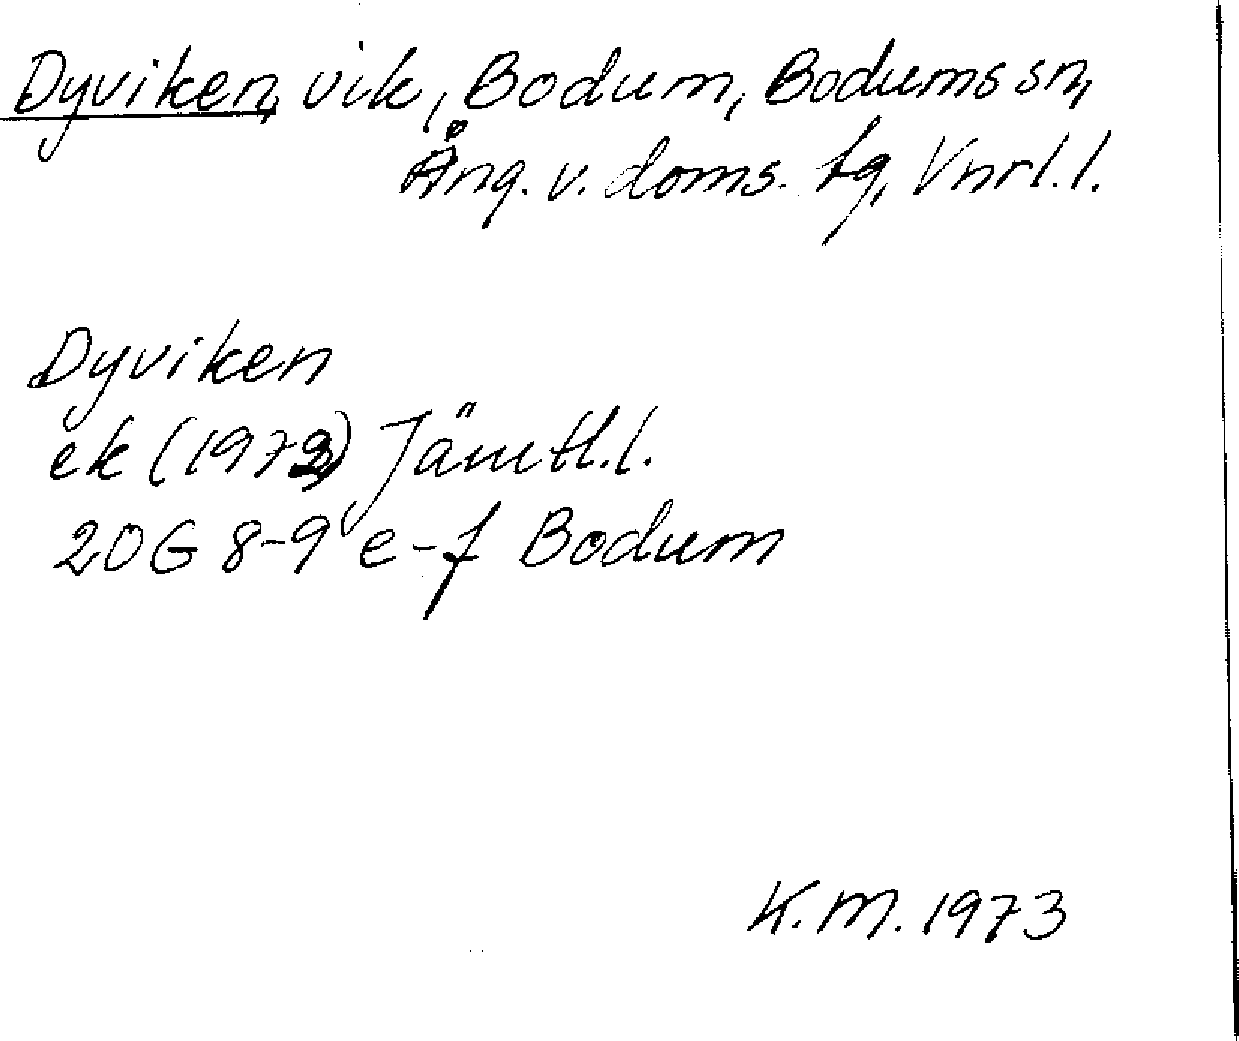 Dyviken, vik, Bodum, Bodums sn,
Ång. v. doms. tg, Vnrl. l.
Dyviken
ek (1972) Jämtl. l.
20G 8-9 e-f Bodum
K.M. 1973